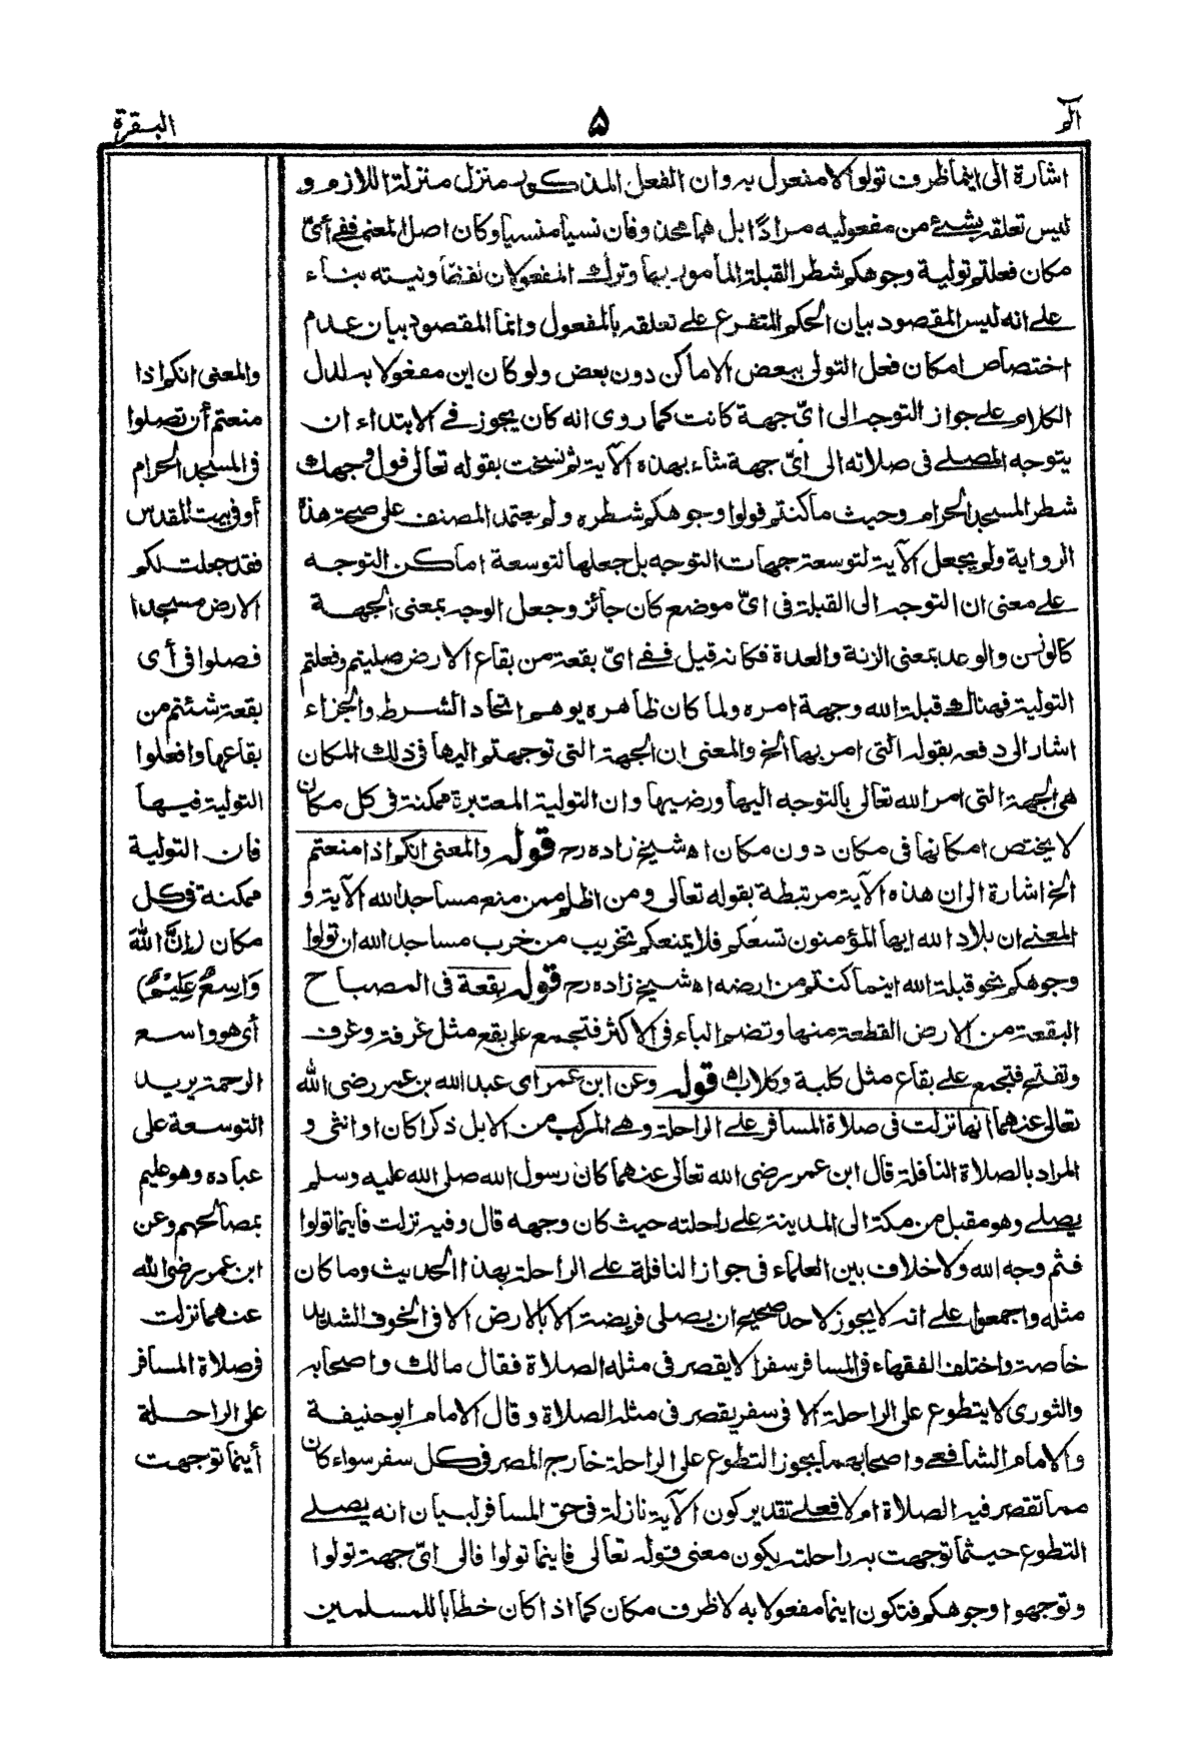 الم
٥
البقرة
اشارة الى اينما ظرف تولوا لا مفعول به وان الفعل المذكور منزل منزلة اللازم و
ليس تعلقه بشئ من مفعوليه مرادًا بل هما محذوفان نسيا منسيا وكان اصل المعنى ففى أىّ
مكان فعلتم تولية وجوهكم شطر القبلة المأمور بها وترك المفعولان لفظا ونيته بناء
على انه ليس المقصود بيان الحكم المتفرع على تعلقه بالمفعول وانما المقصود بيان عدم
اختصاص امكان فعل التولى ببعض الاماكن دون بعض ولو كان اين مفعولا به لدل
الكلام على جواز التوجه الى اىّ جهة كانت كما روى انه كان يجوز فى الابتداء ان
يتوجه المصلى فى صلاته الى اىّ جهة شاء بهذه الآية ثم نسخت بقوله تعالى فول وجهك
شطر المسجد الحرام وحيث ما كنتم فولوا وجوهكم شطره ولم يعتمد المصنف على صحة هذه
الرواية ولم يجعل الآية لتوسعة جهات التوجه بل جعلها لتوسعة اماكن التوجه
على معنى ان التوجه الى القبلة فى اىّ موضع كان جائز وجعل الوجه بمعنى الجهة
كالوزن والوعد بمعنى الزنة والعدة فكانه قيل ففى اىّ بقعة من بقاع الارض صليتم وفعلتم
التولية فهنالك قبلة الله وجهة امره ولما كان ظاهره يوهم اتحاد الشرط والجزاء
اشار الى دفعه بقوله التى امر بها الخ والمعنى ان الجهة التى توجهتم اليها فى ذلك المكان
هى الجهة التى امر الله تعالى بالتوجه اليها ورضيها وان التولية المعتبرة ممكنة فى كل مكان
لا يختص امكانها فى مكان دون مكان اه شيخ زاده رح قوله والمعنى انكم اذا منعتم
الخ اشارة الى ان هذه الآية مرتبطة بقوله تعالى ومن اظلم ممن منع مساجد الله الآية و
المعنى ان بلاد الله ايها المؤمنون تسعكم فلا يمنعكم تخريب من خرب مساجد الله ان تولوا
وجوهكم نحو قبلة الله اينما كنتم من ارضه اه شيخ زاده رح قوله بقعة فى المصباح
البقعة من الارض القطعة منها وتضم الباء فى الاكثر فتجمع على بقع مثل غرفة وغرف
وتفتح فتجمع على بقاع مثل كلبة وكلاب اه قوله وعن ابن عمر اى عبد الله بن عمر رضى الله
تعالى عنهما انها نزلت فى صلاة المسافر على الراحلة وهى المركب من الابل ذكرا كان او انثى و
المراد بالصلاة النافلة قال ابن عمر رضى الله تعالى عنهما كان رسول الله صلى الله عليه وسلم
يصلى وهو مقبل من مكة الى المدينة على راحلته حيث كان وجهه قال وفيه نزلت فاينما تولوا
فثم وجه الله ولا خلاف بين العلماء فى جواز النافلة على الراحلة بهذا الحديث وما كان
مثله واجمعوا على انه لا يجوز لاحد صحيح ان يصلى فريضة الا بالارض الا فى الخوف الشديد
خاصة واختلف الفقهاء فى المسافر سفرا لا يقصر فى مثله الصلاة فقال مالك واصحابه
والثورى لا يتطوع على الراحلة الا فى سفر يقصر فى مثله الصلاة وقال الامام ابو حنيفة
والامام الشافعى واصحابهما يجوز التطوع على الراحلة خارج المصر فى كل سفر سواء كان
مما تقصر فيه الصلاة ام لا فعلى تقدير كون الآية نازلة فى حق المسافر لبيان انه يصلى
التطوع حيثما توجهت به راحلته يكون معنى قوله تعالى فاينما تولوا فالى اىّ جهة تولوا
وتوجهوا وجوهكم فتكون اينما مفعولا به لا ظرف مكان كما اذا كان خطابا للمسلمين
والمعنى انكم اذا
منعتم أن تصلوا
فى المسجد الحرام
أو فى بيت المقدس
فقد جعلت لكم
الارض مسجدا
فصلوا فى أى
بقعة شئتم من
بقاعها وافعلوا
التولية فيها
فان التولية
ممكنة فى كل
مكان (إِنَّ اللهَ
وَاسِعٌ عَلِيْمٌ)
أى هو واسع
الرحمة يريد
التوسعة على
عباده وهو عليم
بمصالحهم وعن
ابن عمر رضى الله
عنهما نزلت
فى صلاة المسافر
على الراحلة
أينما توجهت